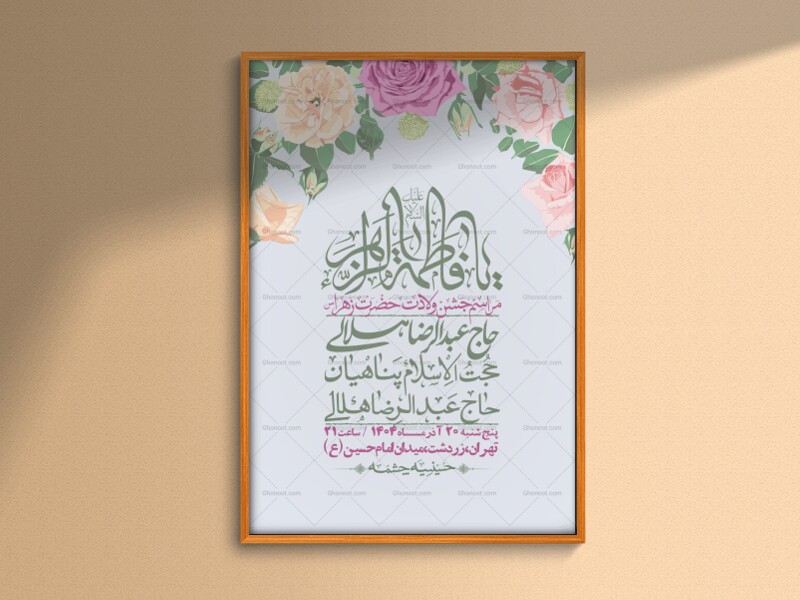 علیك السلام
یا فاطمة الزهراء
مراسم جشن ولادت حضرت زهرا س
حاج عبدالرضا هلالی
حجت الاسلام پناهیان
حاج عبدالرضا هلالی
پنج شنبه ۲۰ آذر ماه ۱۴۰۴ / ساعت ۲۱
تهران، زردشت، میدان امام حسین (ع)
حسینیه چشمه
Ghonoot.com